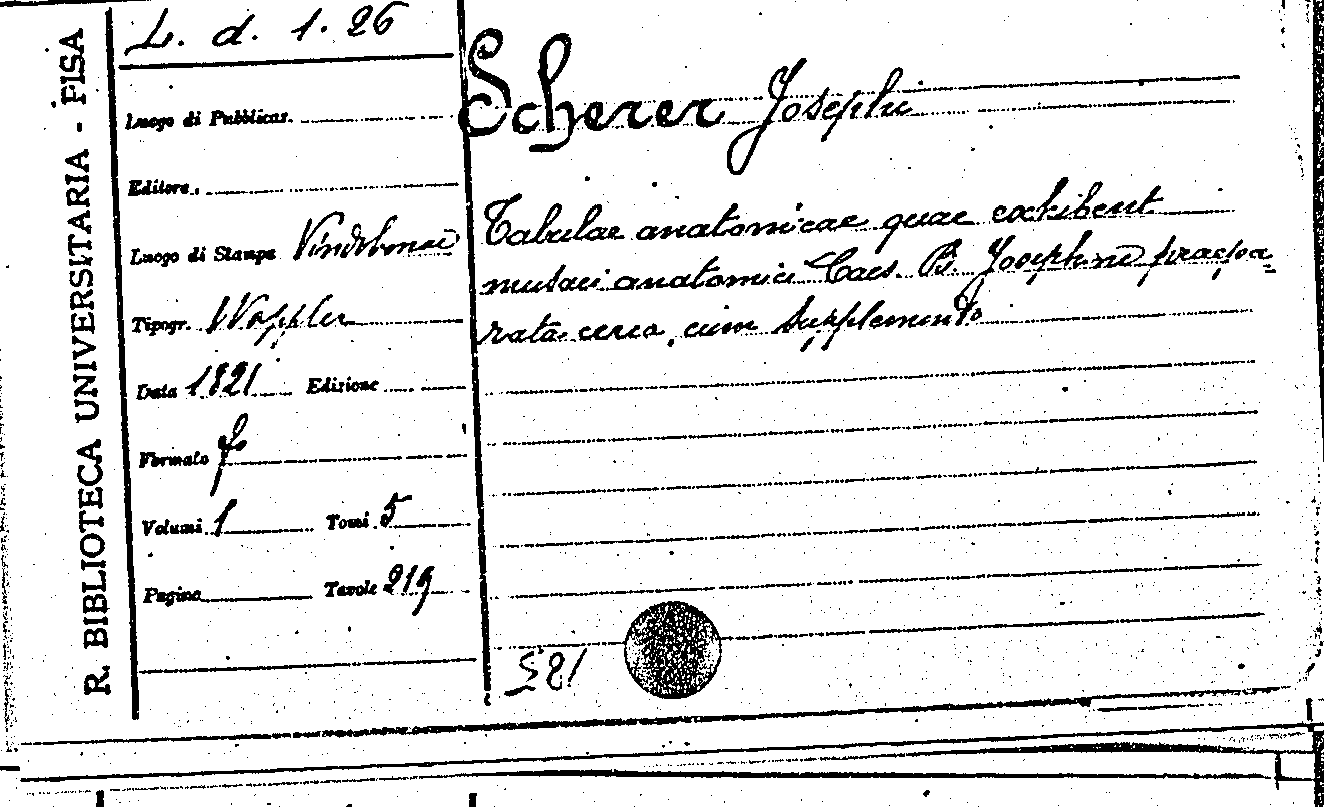 R. BIBLIOTECA UNIVERSITARIA - PISA
L. d. 1. 26
Scherer Josephi
Luogo di Pubblicaz.
Editore
Luogo di Stampa Vindobonae
Tipogr. Wappler
Data 1821 Edizione
Formato f
Volumi 1 Tomi 5
Pagine Tavole 219
Tabulae anatomicae quae exhibent
musaei anatomici Caes. R. Josephini praepa=
rata cerea, cum supplemento
S 81